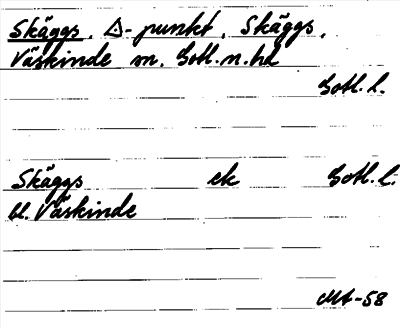 Skäggs. △-punkt, Skäggs,
Väskinde sn. Gotl.n.hd
Gotl. l.
Skäggs ek Gotl. l.
bl. Väskinde
-58